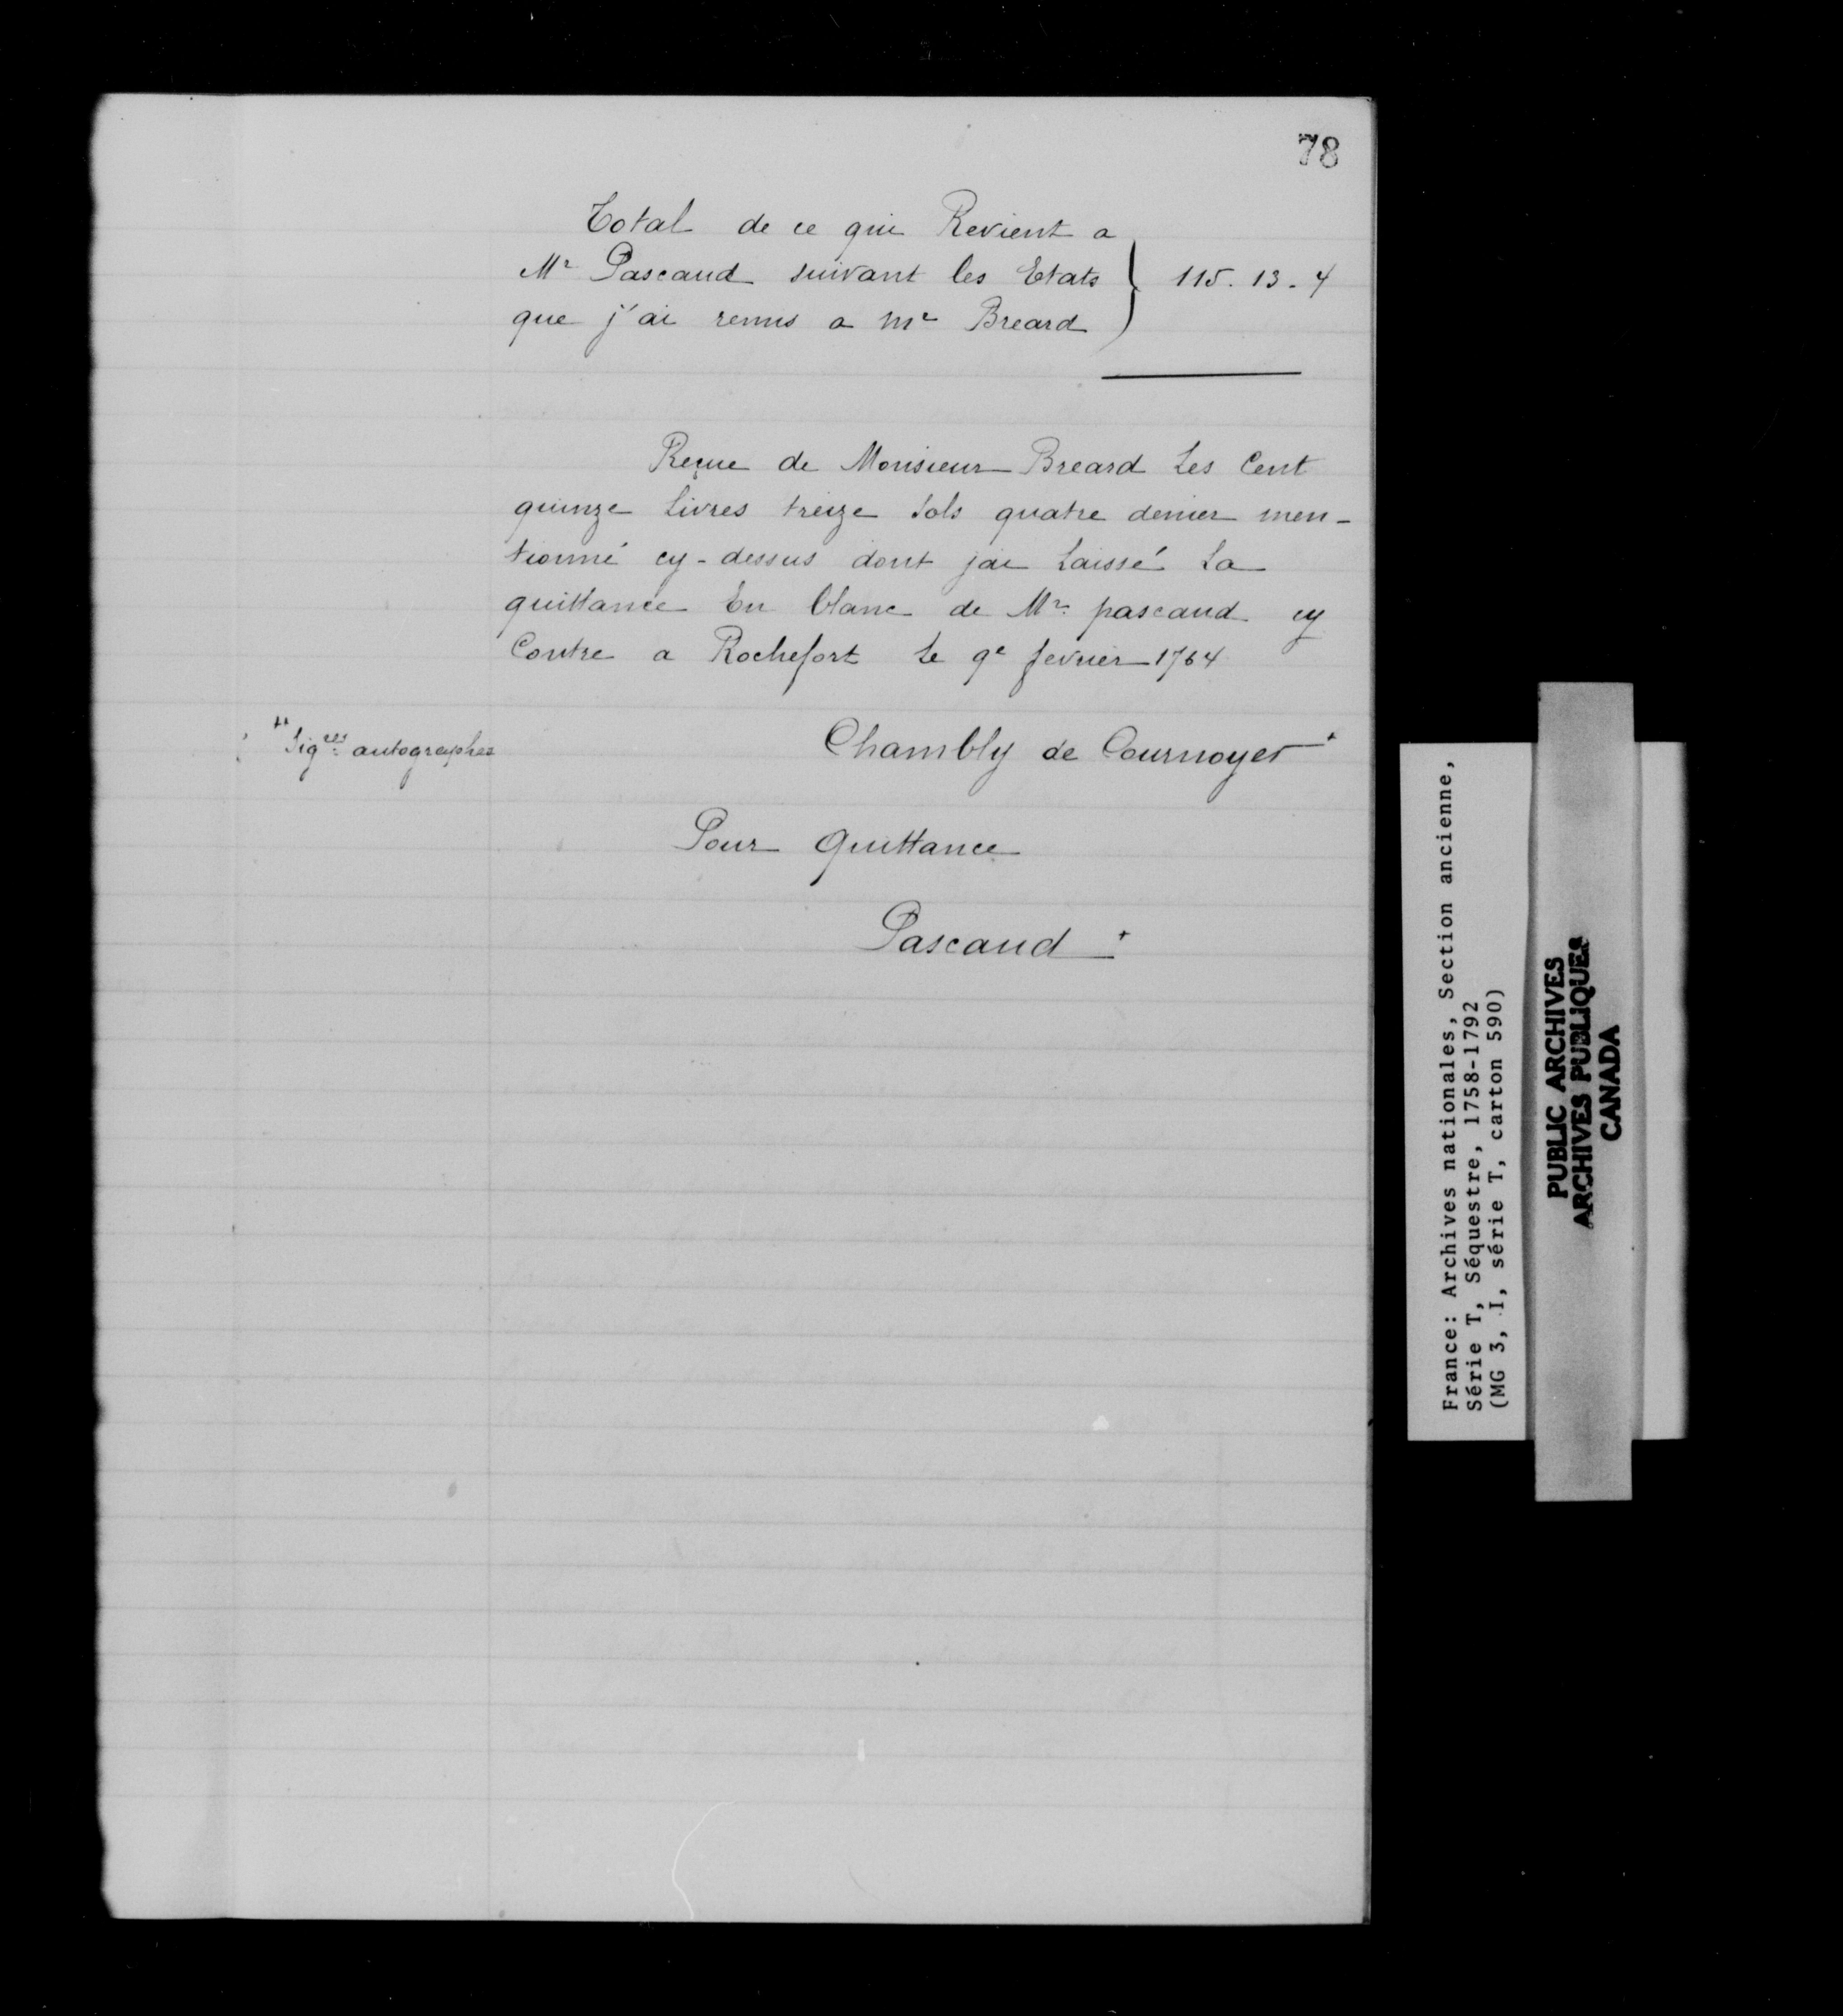 78
Total de ce qui Revient a
Mr Pascaud suivant les Etats } 115. 13. 4
que j'ai remis a Mr Breard
Reçue de Monsieur Breard Les Cent
quinze Livres treize Sols quatre denier men-
tionné cy-dessus dont jai Laissé La
quittance En blanc de Mr. pascaud cy
Contre a Rochefort Le 9e fevrier 1764
Chambly de Cournoyer +
++ Sigres autographes
Pour Quittance
Pascaud +
France: Archives nationales, Section ancienne,
Série T, Séquestre, 1758-1792
(MG 3, I, série T, carton 590)
PUBLIC ARCHIVES
ARCHIVES PUBLIQUES
CANADA